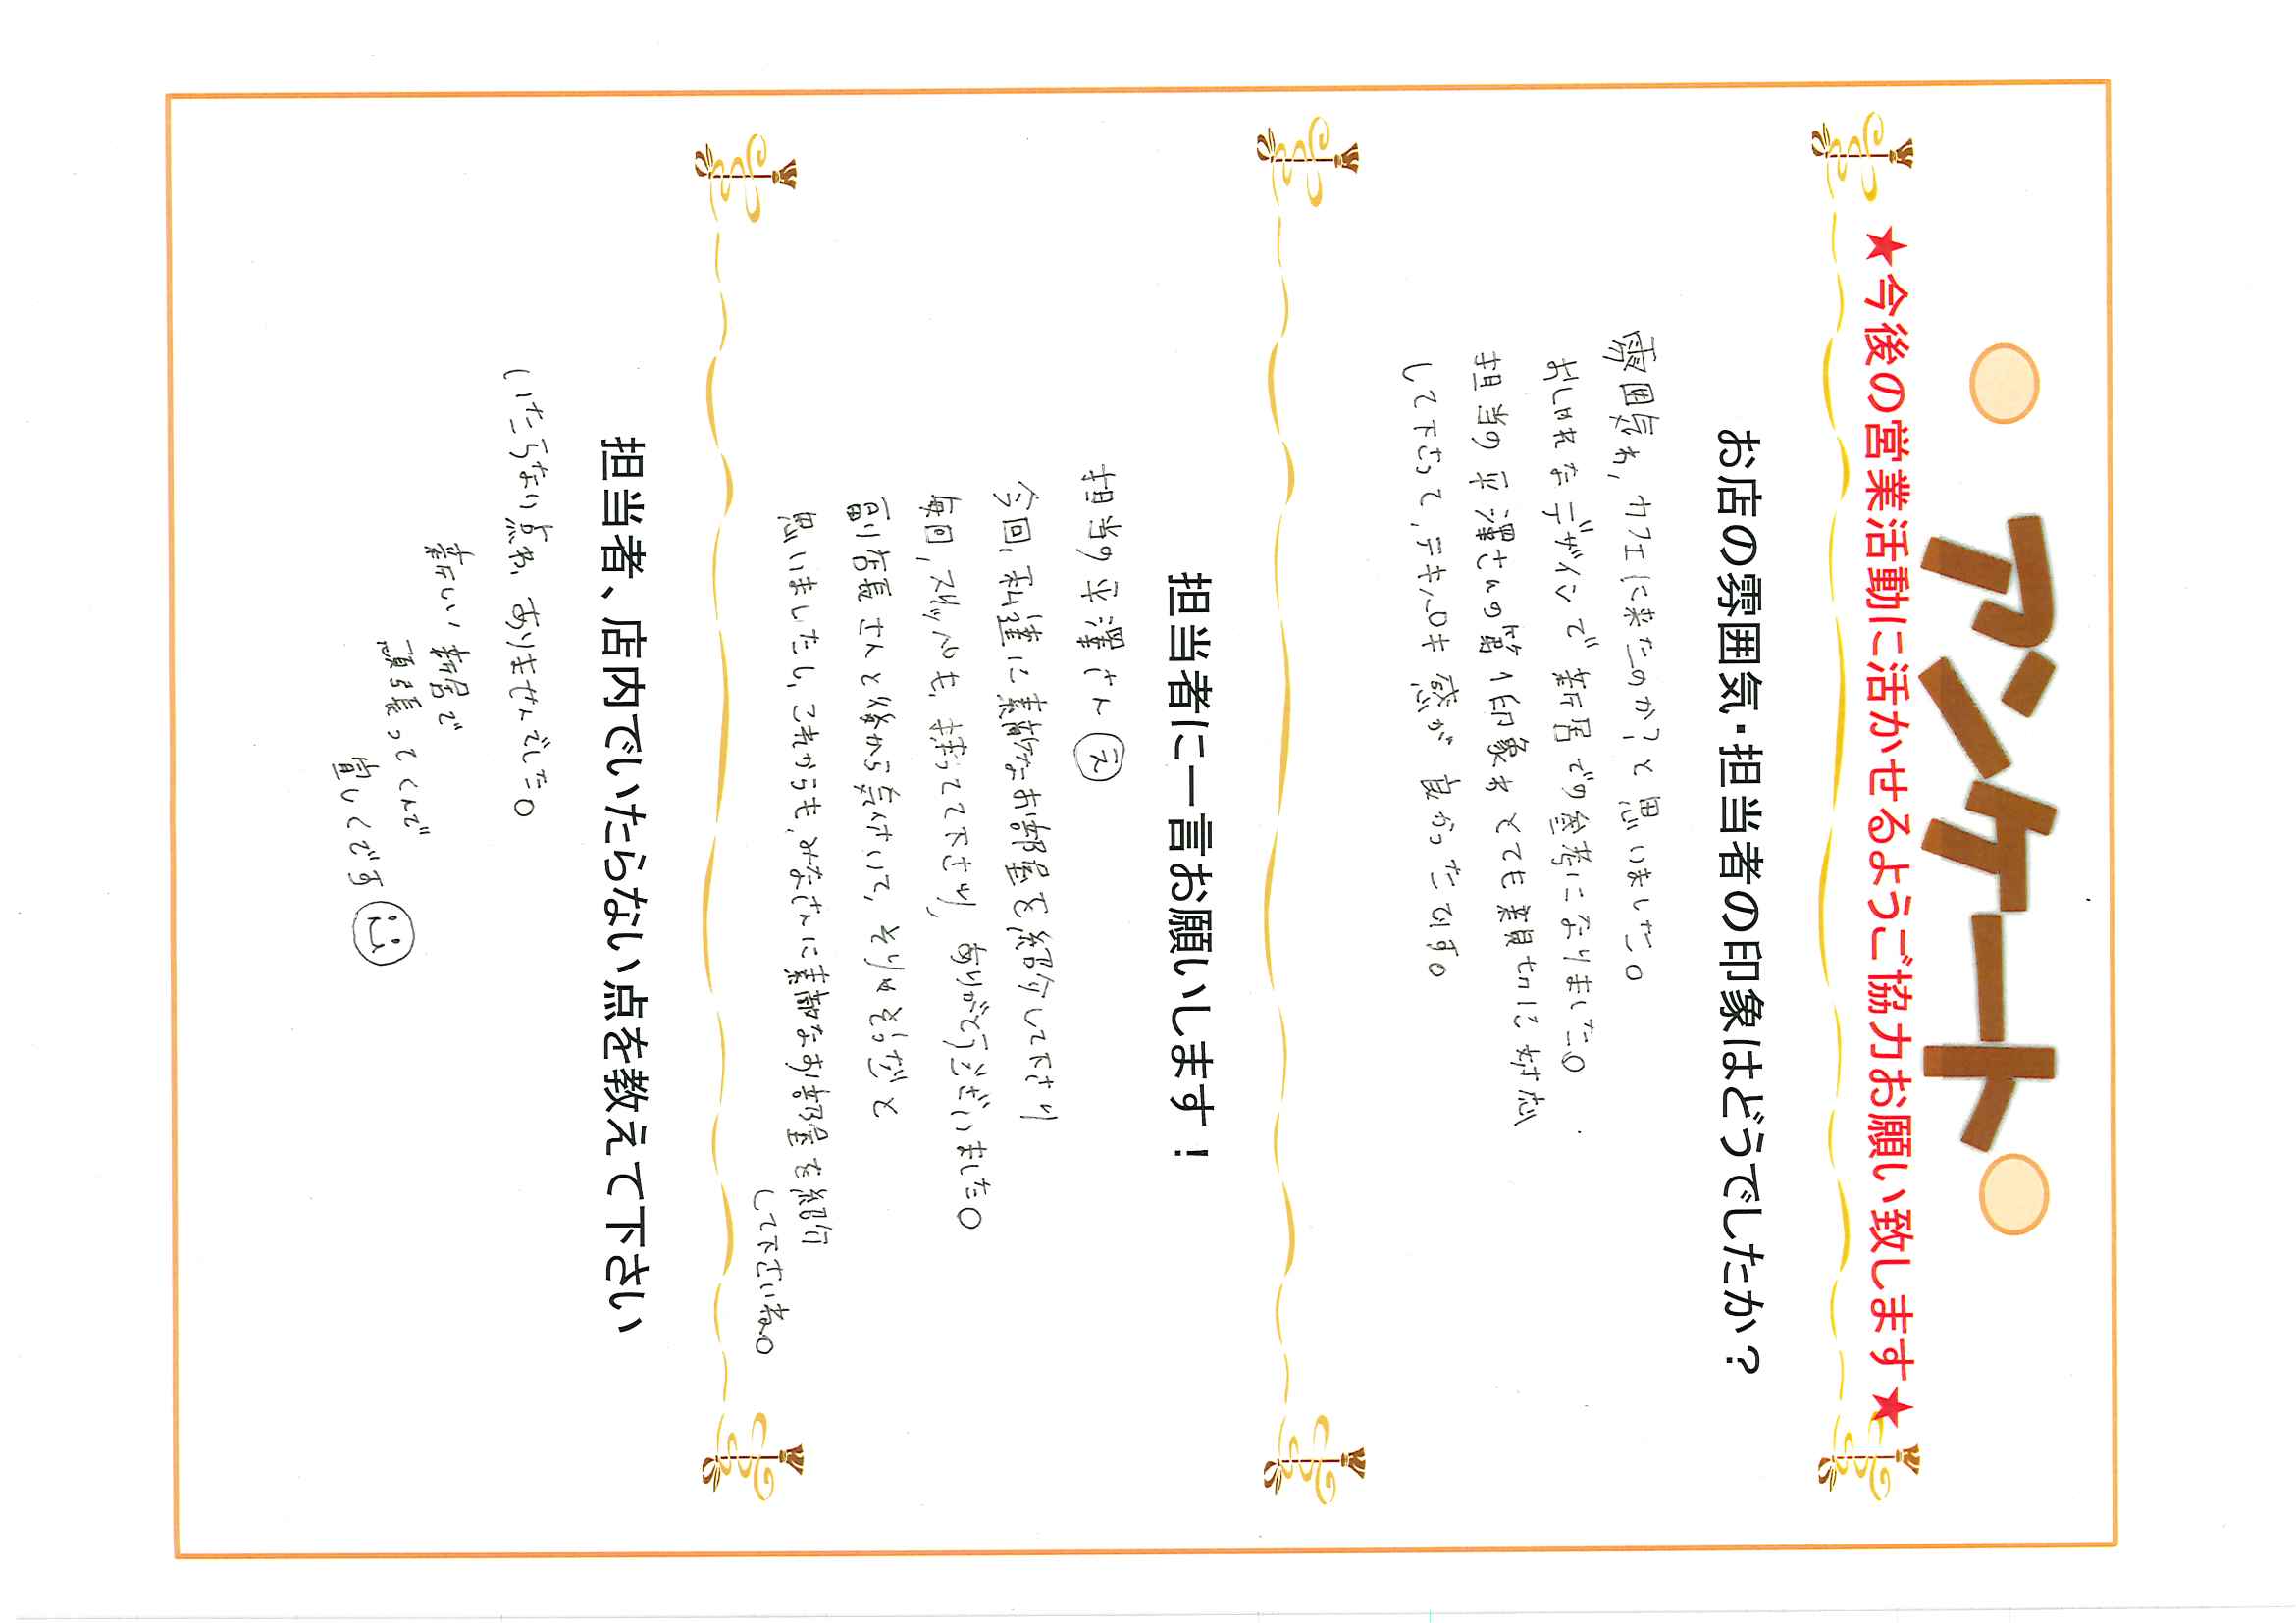 アンケート
★今後の営業活動に活かせるようご協力お願い致します★
お店の雰囲気・担当者の印象はどうでしたか？
雰囲気は,カフェに来たのか？と思いました。
おしゃれなデザインで新居での参考になりました。
担当の平澤さんの第1印象はとても親切に対応
して下さって,テキパキ感が良かったです。
担当者に一言お願いします！
担当の平澤さんえ
今回,私達に素敵なお部屋を紹介して下さり
毎回,スリッパも,持ってて下さり,ありがとうございました。
副店長さんと後から気付いて,そりゃそうだと
思いましたし,これからも,みなさんに素敵なお部屋を紹介
して下さいね。
担当者、店内でいたらない点を教えて下さい
いたらない点は,ありませんでした。
新しい新居で
頑張ってくんで
宜しくです